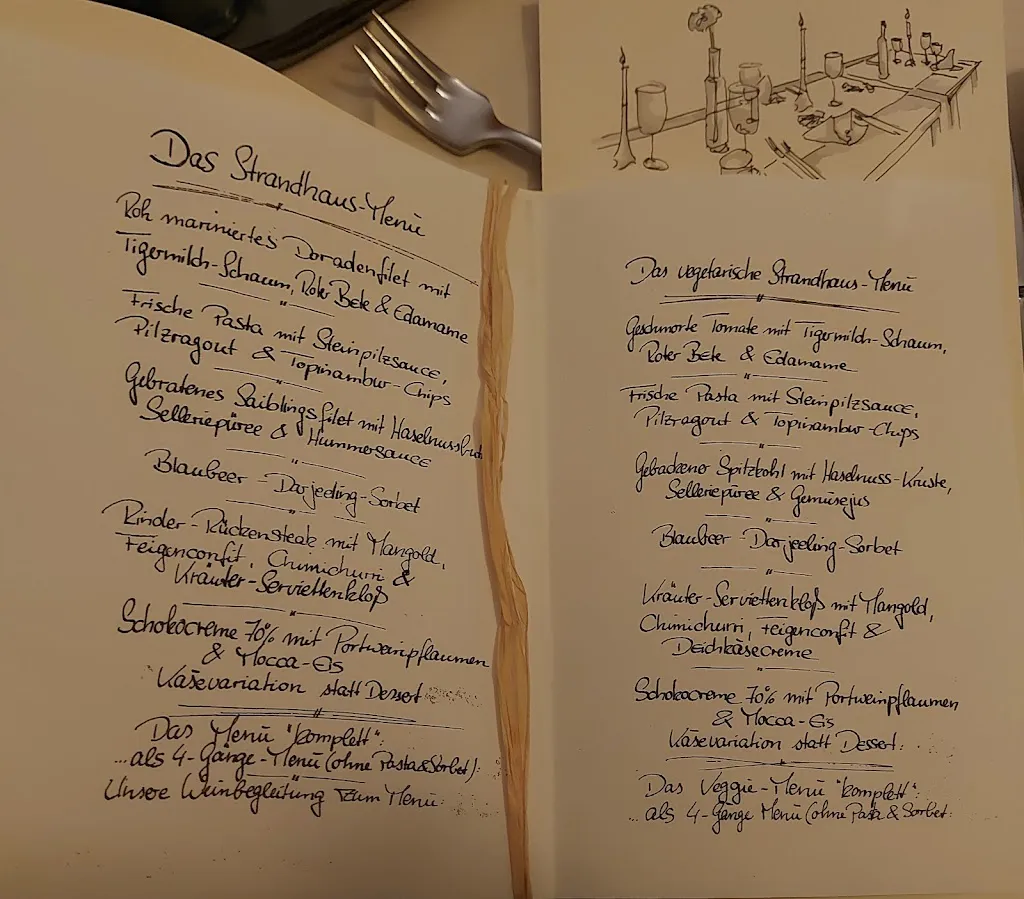 Das Strandhaus-Menü
Roh mariniertes Doradenfilet mit
Tigermilch-Schaum, Roter Bete & Edamame
Frische Pasta mit Steinpilzsauce,
Pilzragout & Topinambur-Chips
Gebratenes Saiblingsfilet mit
Selleriepüree & Hummersauce
Blaubeer-Darjeeling-Sorbet
Rinder-Rückensteak mit Mangold,
Feigenconfit, Chimichurri &
Kräuter-Serviettenkloß
Schokocreme 70% mit Portweinpflaumen
& Mocca-Eis
Käsevariation statt Dessert
Das Menü "komplett":
...als 4-Gänge-Menü (ohne Pasta & Sorbet):
Unsere Weinbegleitung zum Menü:
Das vegetarische Strandhaus-Menü
Geschmorte Tomate mit Tigermilch-Schaum,
Roter Bete & Edamame
Frische Pasta mit Steinpilzsauce,
Pilzragout & Topinambur-Chips
Gebackener Spitzkohl mit Haselnuss-Kruste,
Selleriepüree & Gemüsejus
Blaubeer-Darjeeling-Sorbet
Kräuter-Serviettenkloß mit Mangold,
Chimichurri, Feigenconfit &
Deichkäsecreme
Schokocreme 70% mit Portweinpflaumen
& Mocca-Eis
Käsevariation statt Dessert:
Das Veggie-Menü "komplett":
...als 4-Gänge Menü (ohne Pasta & Sorbet: